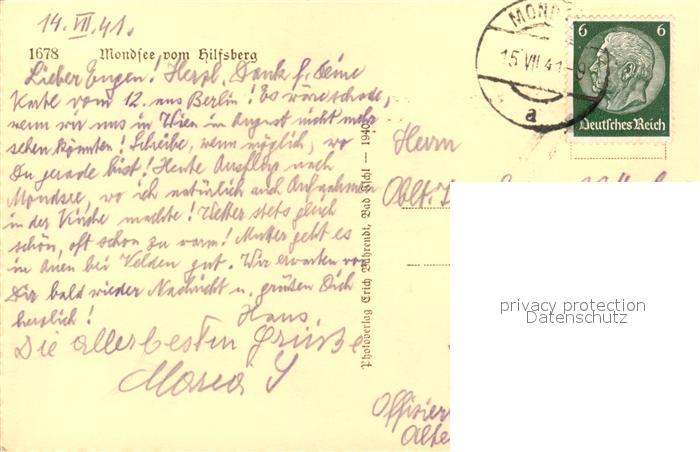 14. VII. 41.
1678 Mondsee vom Hilfsberg
Lieber Eugen! Herzl. Dank f. Deine
Karte vom 12. aus Berlin! Es wäre schade,
wenn wir uns in Wien im August nicht mehr
sehen könnten! Schreibe, wenn möglich, wo
Du gerade bist! Heute Ausflug nach
Mondsee, wo ich natürlich auch Aufnahmen
in der Kirche machte! Wetter stets gleich
schön, oft schon zu warm! Mutter geht es
in Auen bei Velden gut. Wir erwarten von
Dir bald wieder Nachricht u. grüßen Dich
herzlich! Hans.
Die allerbesten Grüße
Maria
Photoverlag Erich Bährendt, Bad Ischl — 1940
MOND
15 VII 41-9
a
6 6
Deutsches Reich
Herrn
Oblt.
privacy protection
Datenschutz
Offizier
Alte